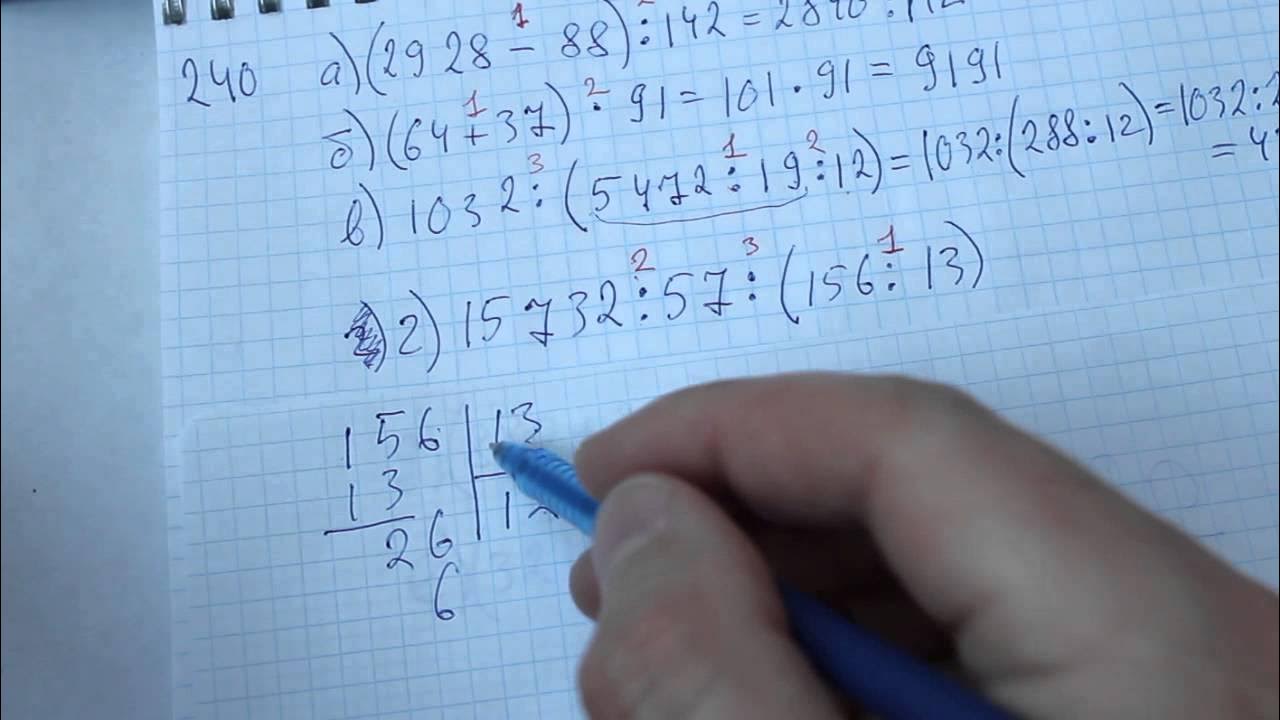 240 а) (2928 − 88) : 142 = 2840 : 142
б) (64 + 37) · 91 = 101 · 91 = 9191
в) 1032 : (5472 : 19 : 12) = 1032 : (288 : 12) = 1032 : 2
= 4
г) 15732 : 57 : (156 : 13)
156 | 13
13
26 | 12
6